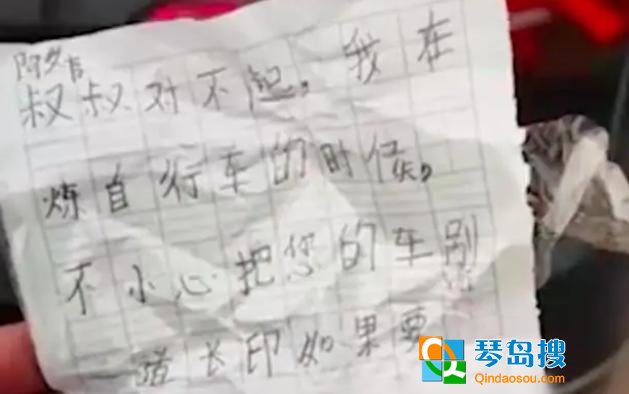 叔叔对不起,我在
炼自行车的时候,
不小心把您的车别
一道长印如果要
琴岛搜
Qindaosou.com